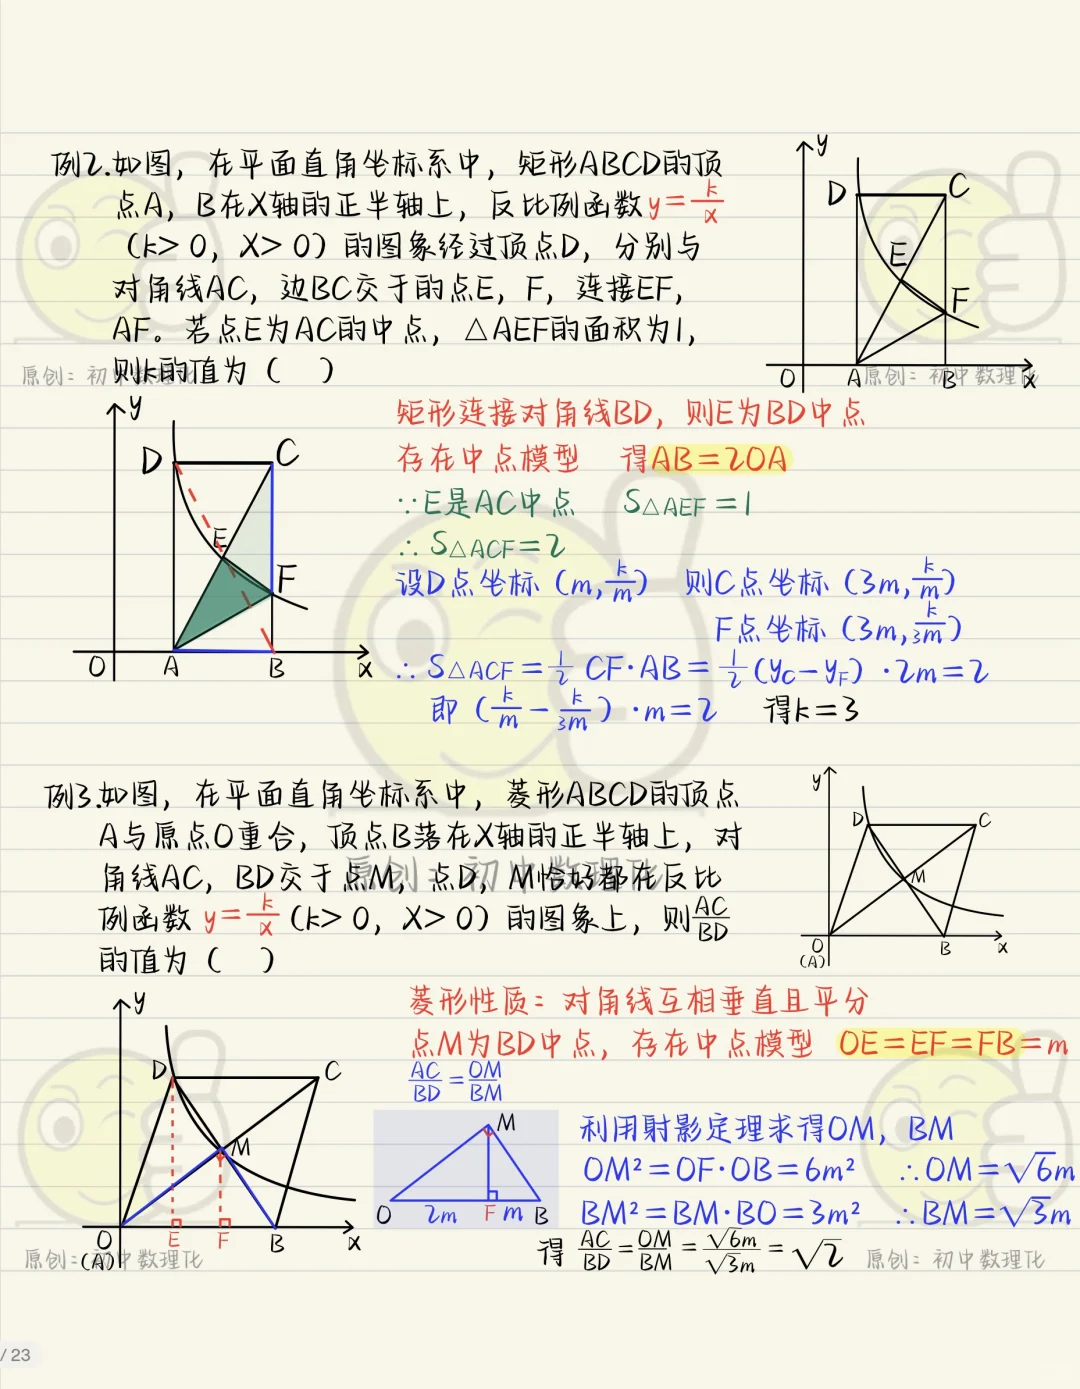 例2.如图，在平面直角坐标系中，矩形ABCD的顶
点A，B在X轴的正半轴上，反比例函数y=k/x
（k>0，X>0）的图象经过顶点D，分别与
对角线AC，边BC交于的点E，F，连接EF，
AF。若点E为AC的中点，△AEF的面积为1，
则k的值为（　）
y
D
C
E
F
O
A
B
x
原创：初中数理化
原创：初中数理化
y
D
C
E
F
O
A
B
x
矩形连接对角线BD，则E为BD中点
存在中点模型　得AB=2OA
∵E是AC中点　S△AEF=1
∴S△ACF=2
设D点坐标（m,k/m）　则C点坐标（3m,k/m）
F点坐标（3m,k/3m）
∴S△ACF=1/2 CF·AB=1/2(yC-yF)·2m=2
即（k/m-k/3m）·m=2　得k=3
例3.如图，在平面直角坐标系中，菱形ABCD的顶点
A与原点O重合，顶点B落在X轴的正半轴上，对
角线AC，BD交于点M，点D，M恰好都在反比
例函数 y=k/x（k>0，X>0）的图象上，则AC/BD
的值为（　）
原创：初中数理化
y
D
C
M
O
(A)
B
x
y
D
C
M
O
(A)
E
F
B
x
菱形性质：对角线互相垂直且平分
点M为BD中点，存在中点模型　OE=EF=FB=m
AC/BD=OM/BM
M
O
2m
F
m
B
利用射影定理求得OM，BM
OM²=OF·OB=6m²　∴OM=√6m
BM²=BM·BO=3m²　∴BM=√3m
得 AC/BD=OM/BM=√6m/√3m=√2
原创：初中数理化
原创：初中数理化
/ 23